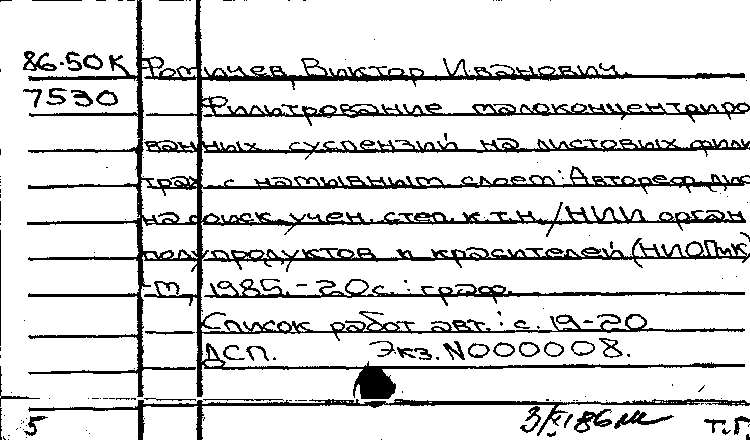 86-50К Фомичев, Виктор Иванович.
7530 Фильтрование малоконцентриро
ванных суспензий на листовых филь
трах с намывным слоем: Автореф. дис
на соиск. учен. степ. к.т.н. / НИИ орган
полупродуктов и красителей (НИОПиК)
-М, 1985.-20с.: граф.
Список работ авт.: с. 19-20
ДСП. Экз. N000008.
5 т.г.